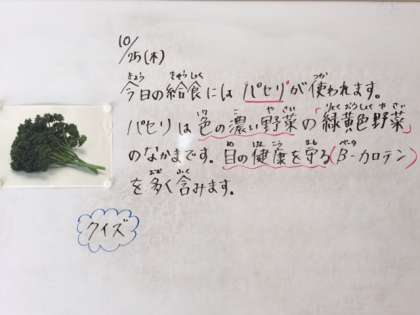 10/25(木)
今日の給食には「パセリ」が使われます。
パセリは色の濃い野菜の「緑黄色野菜」
のなかまです。目の健康を守る(β-カロテン)
を多く含みます。
クイズ